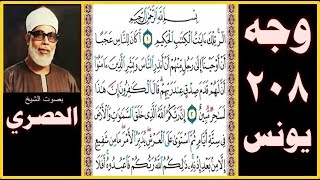 وجه
٢٠٨
يونس
بِسْمِ اللَّهِ الرَّحْمَٰنِ الرَّحِيمِ
الٓر تِلْكَ ءَايَٰتُ الْكِتَٰبِ الْحَكِيمِ ١ أَكَانَ لِلنَّاسِ عَجَبًا
أَنْ أَوْحَيْنَآ إِلَىٰ رَجُلٍ مِّنْهُمْ أَنْ أَنذِرِ النَّاسَ وَبَشِّرِ الَّذِينَ ءَامَنُوٓا
أَنَّ لَهُمْ قَدَمَ صِدْقٍ عِندَ رَبِّهِمْ قَالَ الْكَٰفِرُونَ إِنَّ هَٰذَا
لَسَٰحِرٌ مُّبِينٌ ٢ إِنَّ رَبَّكُمُ اللَّهُ الَّذِي خَلَقَ السَّمَٰوَٰتِ وَالْأَرْضَ
فِي سِتَّةِ أَيَّامٍ ثُمَّ اسْتَوَىٰ عَلَى الْعَرْشِ يُدَبِّرُ الْأَمْرَ مَا مِن شَفِيعٍ
إِلَّا مِنۢ بَعْدِ إِذْنِهِ ذَٰلِكُمُ اللَّهُ رَبُّكُمْ فَاعْبُدُوهُ أَفَلَا
بصوت الشيخ
الحصري